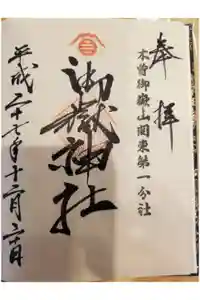 奉拝
木曽御嶽山関東第一分社
御嶽神社
平成二十七年十二月六日